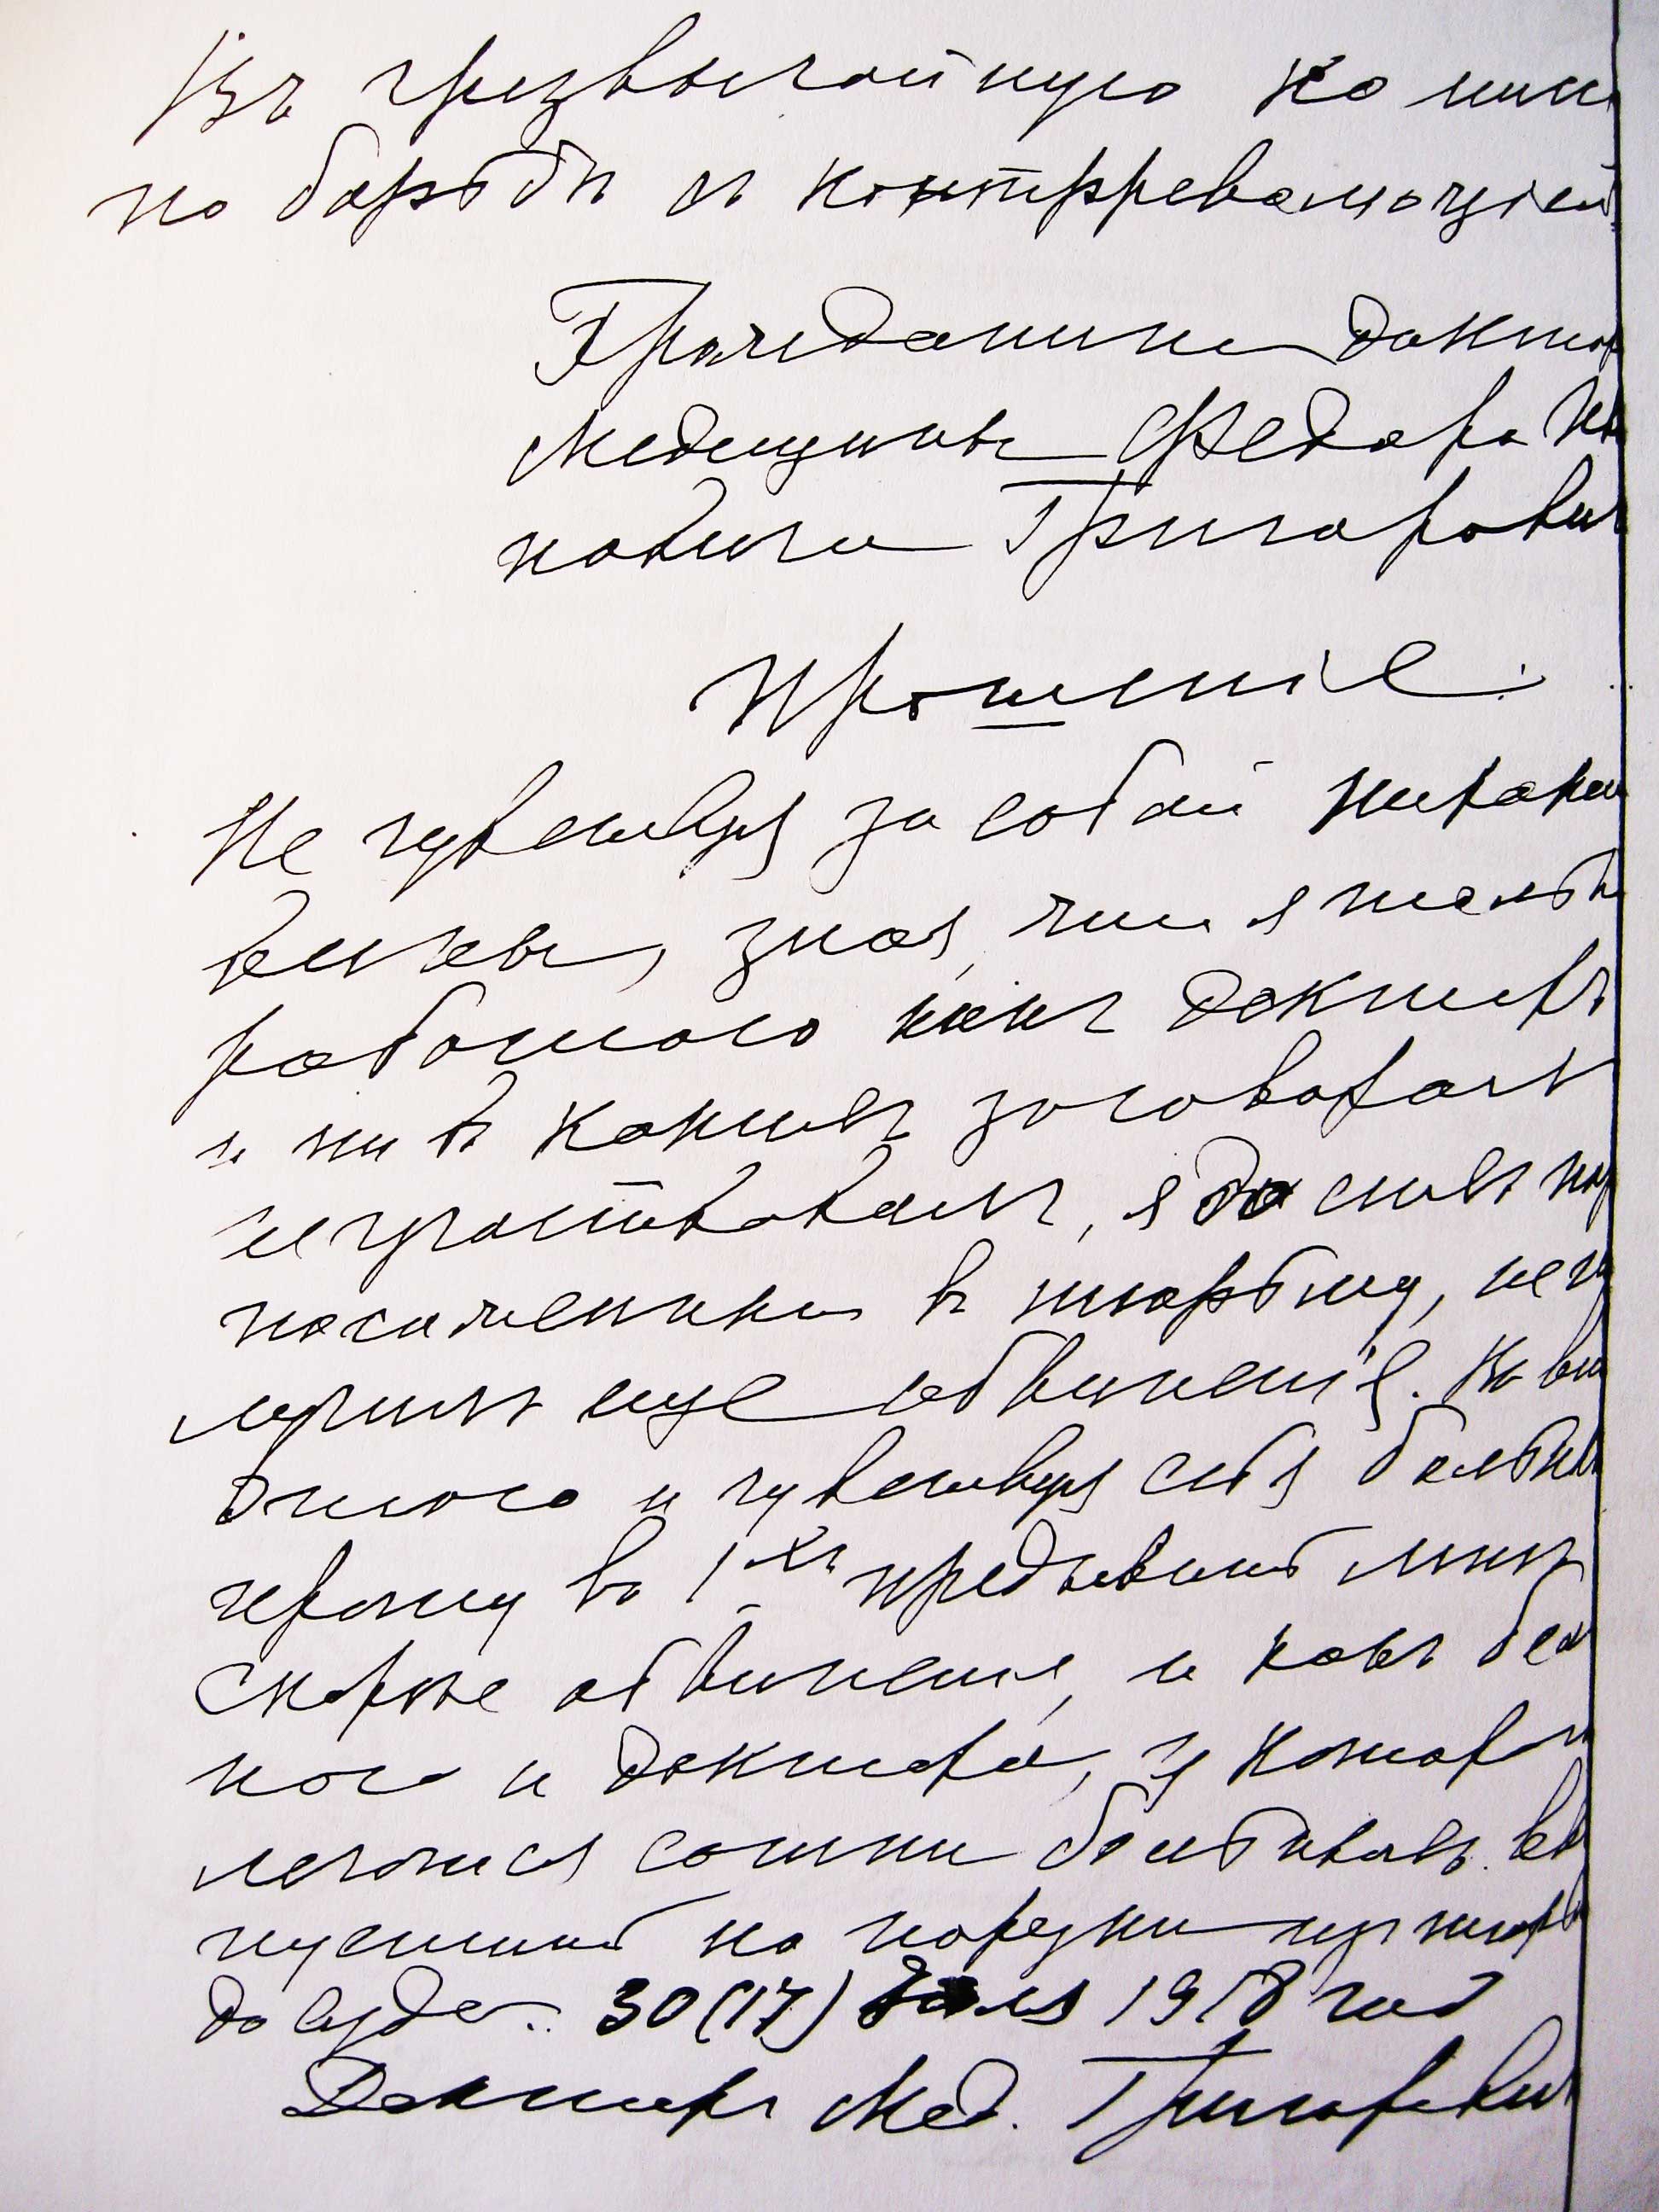 Въ чрезвычайную коми
по борьбѣ съ контрреволюціей
Гражданина доктор
Медицины Федора
новича Григорович
Прошеніе.
Не чувствуя за собой никакой
вины, зная, что я только
работаю какъ докторъ
и ни въ какихъ заговорахъ
не участвовалъ, я до сихъ пор
посаженнымъ въ тюрьму, не
лучилъ еще обвиненія.
этого и чувствуя себя больны
прошу во 1хъ предъявить мнѣ
скорѣе обвиненіе, и какъ боль
ного и доктора, у котора
лечатся сотни больныхъ вы
пустить на поруки изъ тюрь
до суда. 30 (17) 1918 год
Докторъ Мед. Григорович